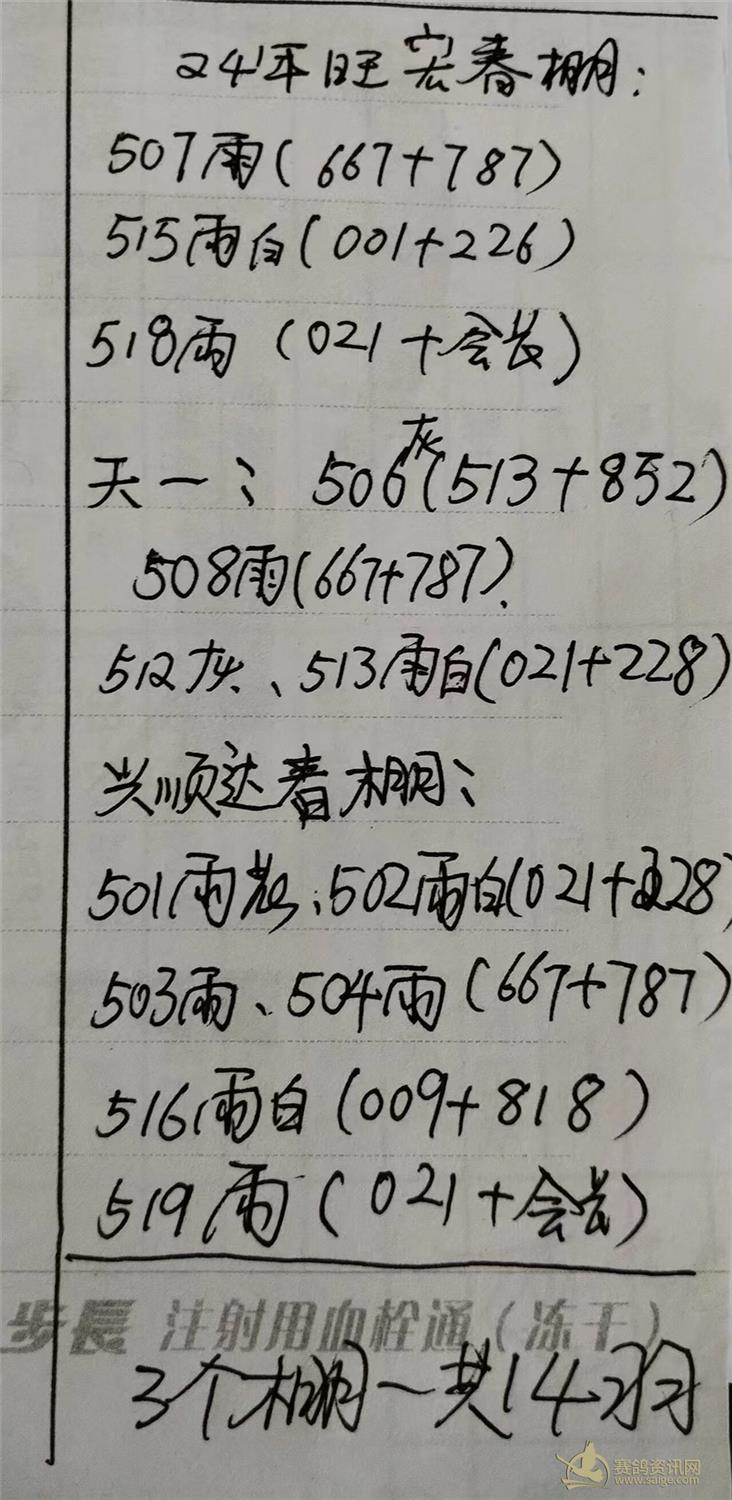 24年旺宏春棚：
507雨（667+787）
515雨白（001+226）
518雨（021+会长）
天一：506灰（513+852）
508雨（667+787）.
512灰、513雨白（021+228）
兴顺达春棚：
501雨花、502雨白（021+228）
503雨、504雨（667+787）
516雨白（009+818）
519雨（021+会长）
步長 注射用血栓通（冻干）
3个棚一共14羽
赛鸽资讯网
www.saige.com